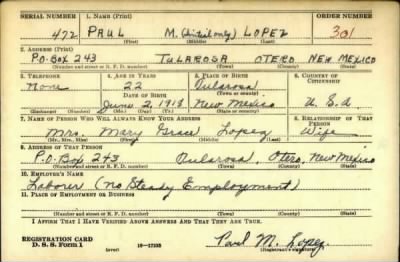 SERIAL NUMBER 1. NAME (Print) ORDER NUMBER
472 PAUL M. (initial only) LOPEZ 301
(First) (Middle) (Last)
2. ADDRESS (Print)
P.O. BOX 243 TULAROSA OTERO NEW MEXICO
(Number and street or R. F. D. number) (Town) (County) (State)
3. TELEPHONE 4. AGE IN YEARS 5. PLACE OF BIRTH 6. COUNTRY OF CITIZENSHIP
None 22 Tularosa
DATE OF BIRTH (Town or county)
June 2, 1918 New Mexico U.S.A
(Exchange) (Number) (Mo.) (Day) (Yr.) (State or country)
7. NAME OF PERSON WHO WILL ALWAYS KNOW YOUR ADDRESS 8. RELATIONSHIP OF THAT PERSON
Mrs. Mary Grace Lopez Wife
(Mr., Mrs., Miss) (First) (Middle) (Last)
9. ADDRESS OF THAT PERSON
P.O. Box 243 Tularosa, Otero, New Mexico
(Number and street or R. F. D. number) (Town) (County) (State)
10. EMPLOYER'S NAME
Laborer (No Steady Employment)
11. PLACE OF EMPLOYMENT OR BUSINESS
(Number and street or R. F. D. number) (Town) (County) (State)
I AFFIRM THAT I HAVE VERIFIED ABOVE ANSWERS AND THAT THEY ARE TRUE.
REGISTRATION CARD
D. S. S. Form 1 (over) Paul M. Lopez
(Registrant's signature)